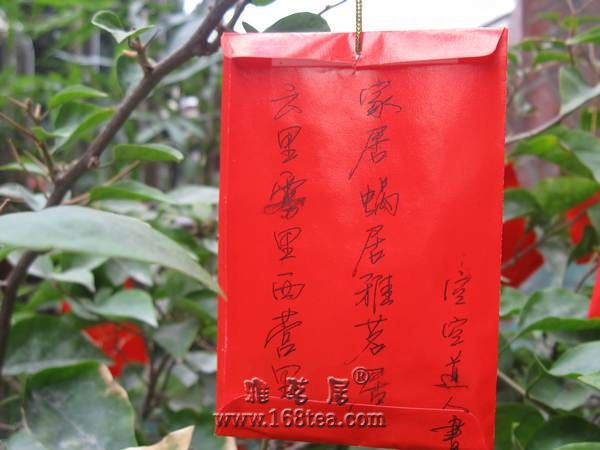 云里雾里西营里
家居蜗居雅茗居
空空道人書
雅茗居®
www.168tea.com